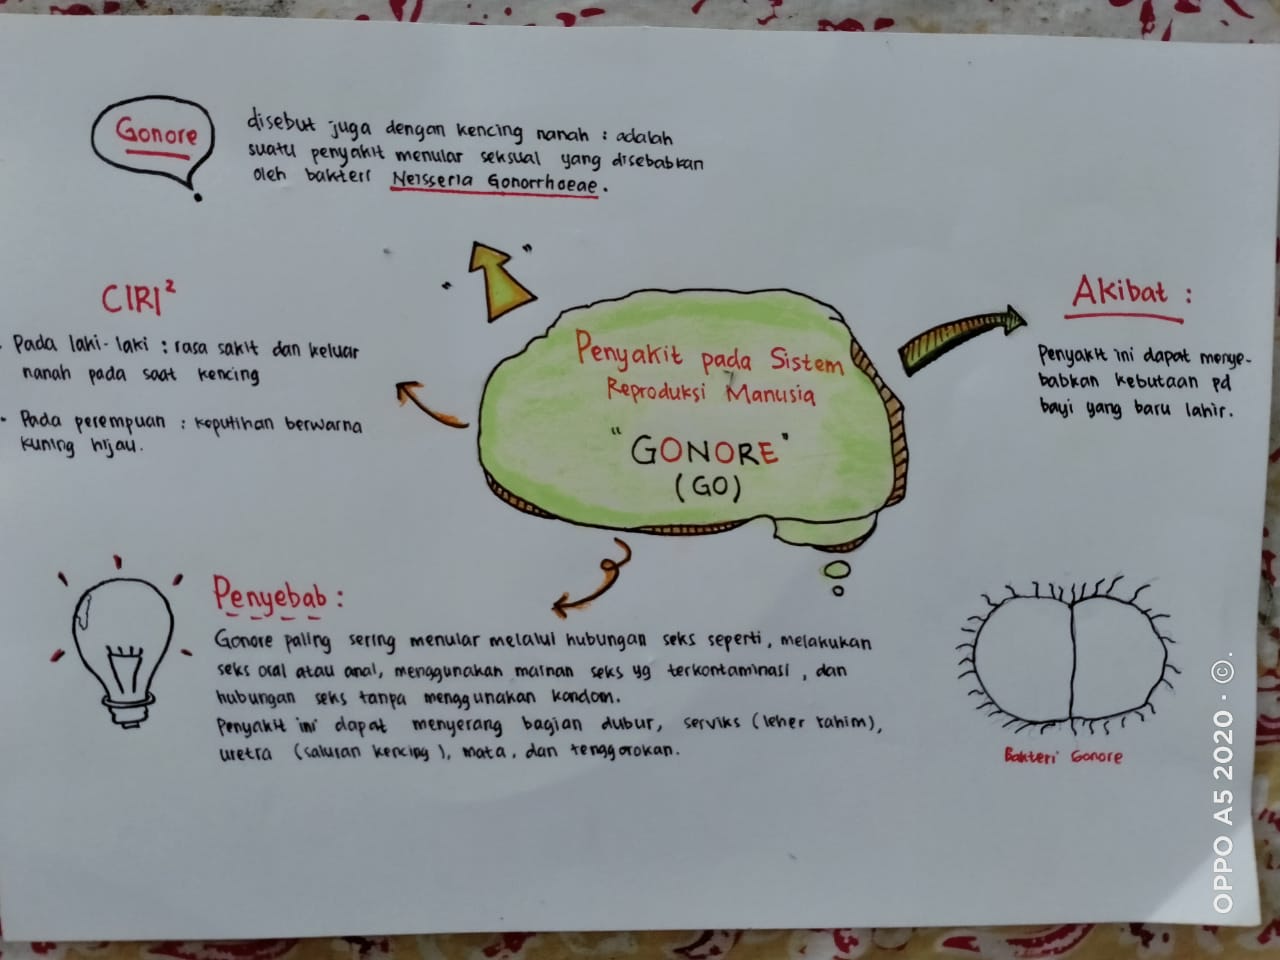 Gonore
disebut juga dengan kencing nanah : adalah
suatu penyakit menular seksual yang disebabkan
oleh bakteri Neisseria Gonorrhoeae.
CIRI²
• Pada laki-laki : rasa sakit dan keluar
nanah pada saat kencing
• Pada perempuan : keputihan berwarna
kuning hijau.
Penyakit pada Sistem
Reproduksi Manusia
"GONORE"
(GO)
Akibat :
Penyakit ini dapat menye-
babkan kebutaan pd
bayi yang baru lahir.
Penyebab :
Gonore paling sering menular melalui hubungan seks seperti, melakukan
seks oral atau anal, menggunakan mainan seks yg terkontaminasi, dan
hubungan seks tanpa menggunakan kondom.
Penyakit ini dapat menyerang bagian dubur, serviks (leher rahim),
uretra (saluran kencing), mata, dan tenggorokan.
Bakteri Gonore
OPPO A5 2020 · ©.